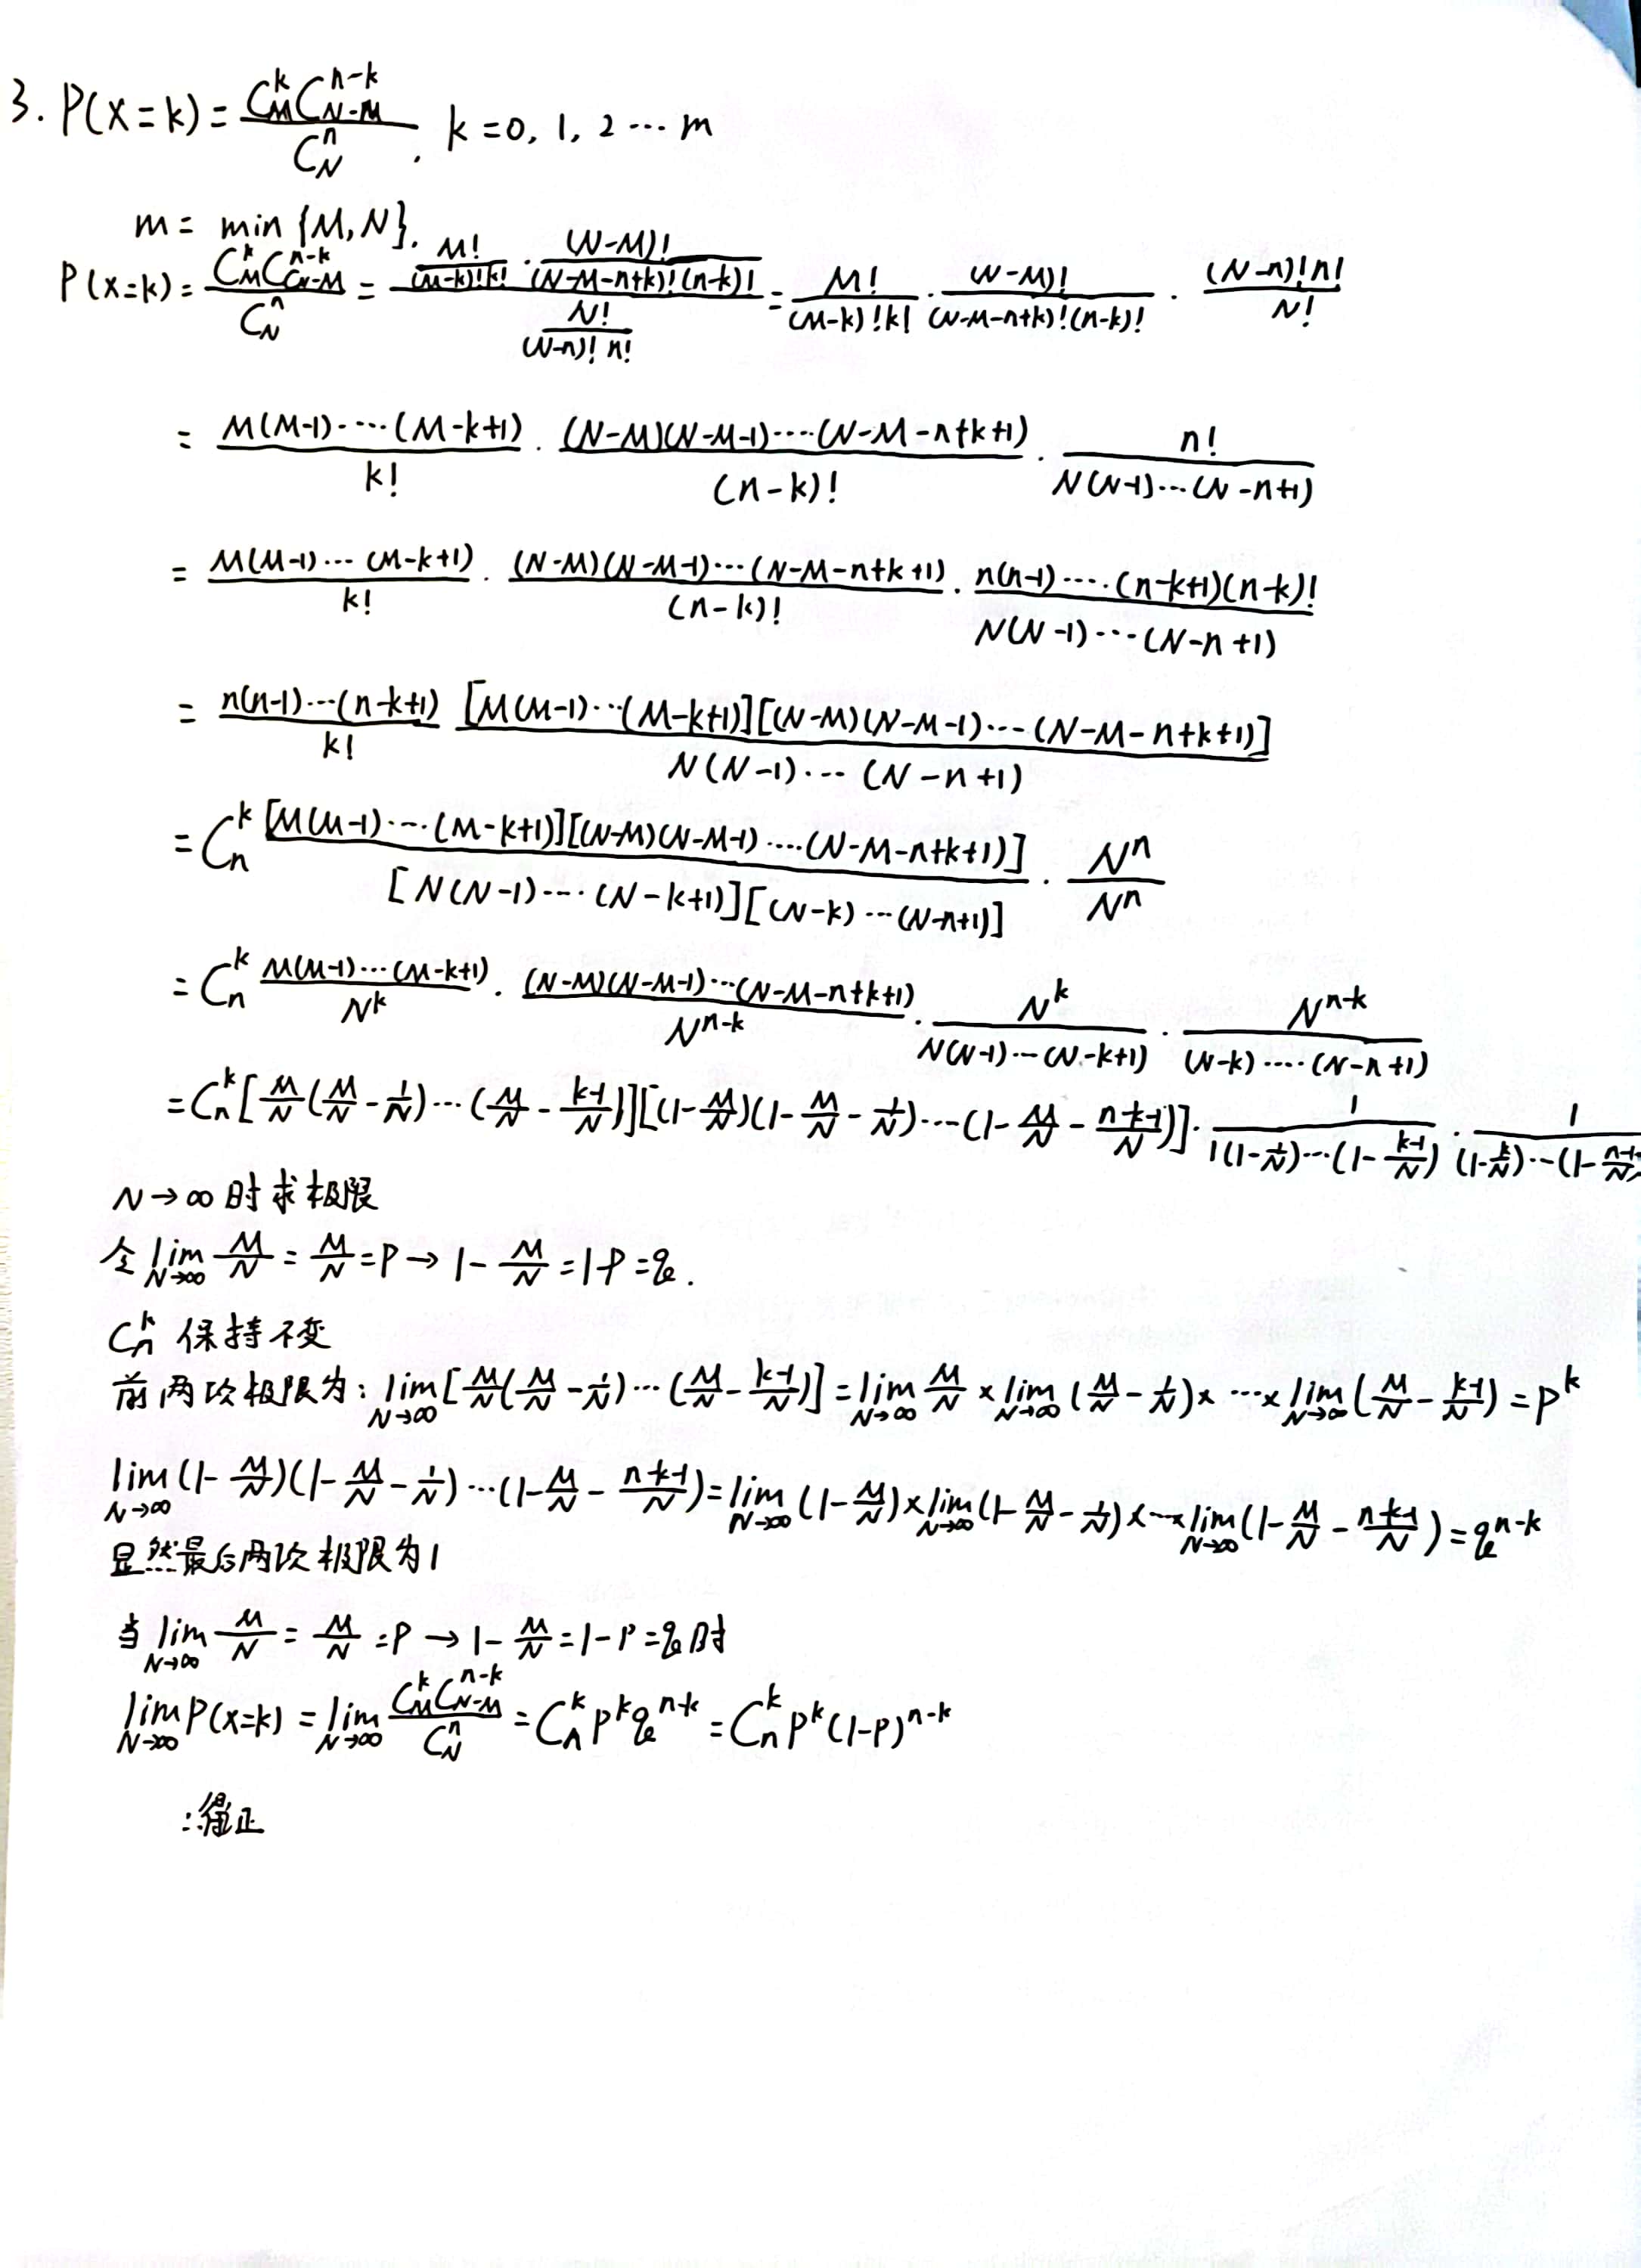 3. P(X=k) = \frac{C_M^k C_{N-M}^{n-k}}{C_N^n}, k=0, 1, 2 ⋯ m
m = min {M, N}.
P(X=k) = \frac{C_M^k C_{N-M}^{n-k}}{C_N^n} = \frac{\frac{M!}{(M-k)!k!} · \frac{(N-M)!}{(N-M-n+k)!(n-k)!}}{\frac{N!}{(N-n)!n!}} = \frac{M!}{(M-k)!k!} · \frac{(N-M)!}{(N-M-n+k)!(n-k)!} · \frac{(N-n)!n!}{N!}
= \frac{M(M-1)⋯(M-k+1)}{k!} · \frac{(N-M)(N-M-1)⋯(N-M-n+k+1)}{(n-k)!} · \frac{n!}{N(N-1)⋯(N-n+1)}
= \frac{M(M-1)⋯(M-k+1)}{k!} · \frac{(N-M)(N-M-1)⋯(N-M-n+k+1)}{(n-k)!} · \frac{n(n-1)⋯(n-k+1)(n-k)!}{N(N-1)⋯(N-n+1)}
= \frac{n(n-1)⋯(n-k+1)}{k!} \frac{[M(M-1)⋯(M-k+1)][(N-M)(N-M-1)⋯(N-M-n+k+1)]}{N(N-1)⋯(N-n+1)}
= C_n^k \frac{[M(M-1)⋯(M-k+1)][(N-M)(N-M-1)⋯(N-M-n+k+1)]}{[N(N-1)⋯(N-k+1)][(N-k)⋯(N-n+1)]} · \frac{N^n}{N^n}
= C_n^k \frac{M(M-1)⋯(M-k+1)}{N^k} · \frac{(N-M)(N-M-1)⋯(N-M-n+k+1)}{N^{n-k}} · \frac{N^k}{N(N-1)⋯(N-k+1)} · \frac{N^{n-k}}{(N-k)⋯(N-n+1)}
= C_n^k [\frac{M}{N}(\frac{M}{N} - \frac{1}{N})⋯(\frac{M}{N} - \frac{k-1}{N})][(1-\frac{M}{N})(1-\frac{M}{N}-\frac{1}{N})⋯(1-\frac{M}{N}-\frac{n-k-1}{N})] · \frac{1}{1(1-\frac{1}{N})⋯(1-\frac{k-1}{N})} · \frac{1}{(1-\frac{k}{N})⋯(1-\frac{n-1}{N})}
N→∞ 时求极限
令 \lim_{N→∞} \frac{M}{N} = \frac{M}{N} = P → 1-\frac{M}{N} = 1-P = q.
C_n^k 保持不变
前两次极限为: \lim_{N→∞} [\frac{M}{N}(\frac{M}{N}-\frac{1}{N})⋯(\frac{M}{N}-\frac{k-1}{N})] = \lim_{N→∞} \frac{M}{N} × \lim_{N→∞} (\frac{M}{N}-\frac{1}{N}) × ⋯ × \lim_{N→∞} (\frac{M}{N}-\frac{k-1}{N}) = P^k
\lim_{N→∞} (1-\frac{M}{N})(1-\frac{M}{N}-\frac{1}{N})⋯(1-\frac{M}{N}-\frac{n-k-1}{N}) = \lim_{N→∞} (1-\frac{M}{N}) × \lim_{N→∞} (1-\frac{M}{N}-\frac{1}{N}) × ⋯ × \lim_{N→∞} (1-\frac{M}{N}-\frac{n-k-1}{N}) = q^{n-k}
显然最后两次极限为1
当 \lim_{N→∞} \frac{M}{N} = \frac{M}{N} = P → 1-\frac{M}{N} = 1-P = q 时
\lim_{N→∞} P(X=k) = \lim_{N→∞} \frac{C_M^k C_{N-M}^{n-k}}{C_N^n} = C_n^k P^k q^{n-k} = C_n^k P^k (1-P)^{n-k}
∴得正